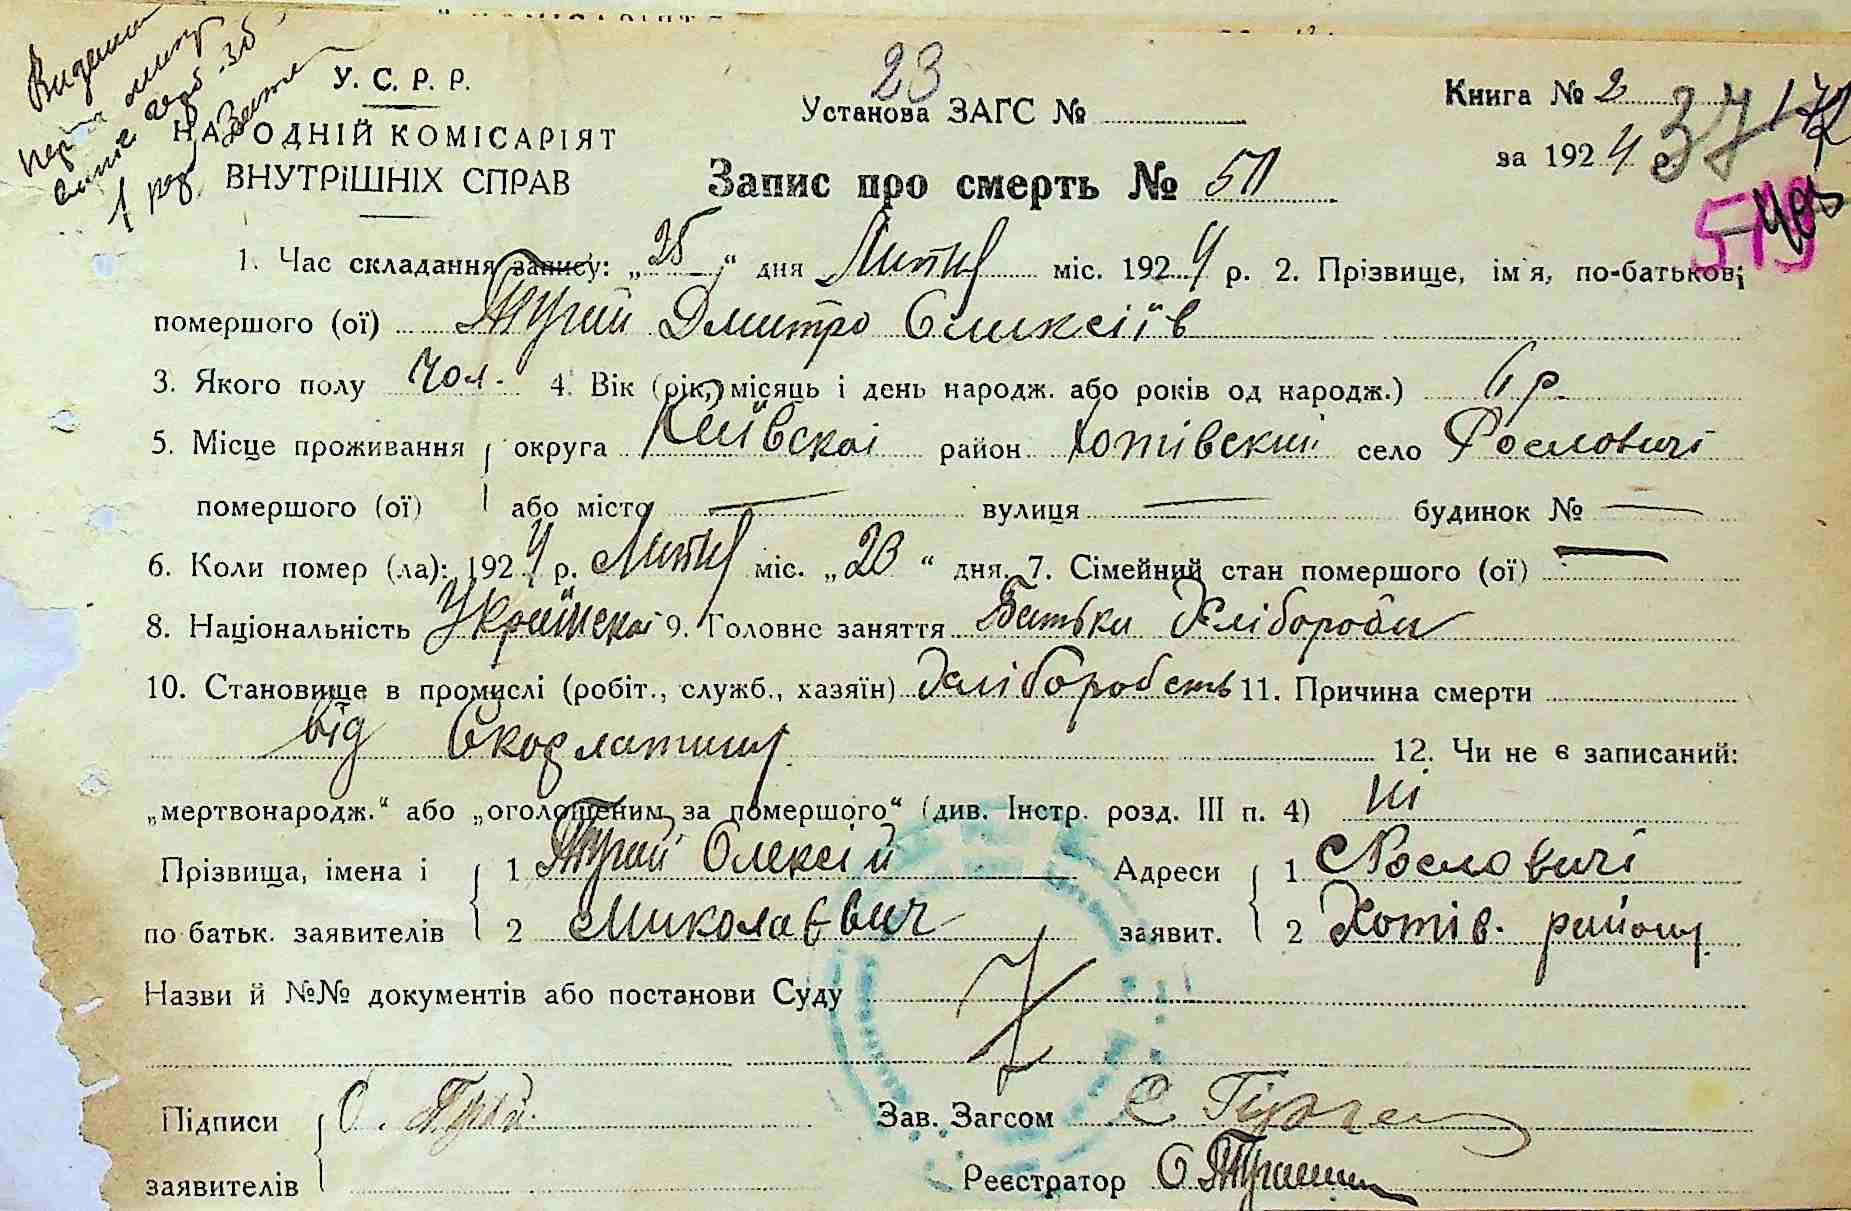 У. С. Р. Р.
НАРОДНІЙ КОМІСАРІЯТ
ВНУТРІШНІХ СПРАВ
23
Установа ЗАГС №
Книга № 2
37
за 1924 р.
Запис про смерть №
1. Час складання запису: „25“ дня Липня міс. 1924 р. 2. Прізвище, ім'я, по-батькові
помершого (ої) Дмитро Олексіїв
3. Якого полу Чол. 4. Вік (рік, місяць і день народж. або років од народж.) р.
5. Місце проживання округа Київскаі район Хотівский село Рословичі
помершого (ої) або місто — вулиця — будинок № —
6. Коли помер (ла): 1924 р. Липня міс. „23“ дня. 7. Сімейний стан помершого (ої) —
8. Національність 9. Головне заняття Батьки Хлібороби
10. Становище в промислі (робіт., служб., хазяїн) 11. Причина смерти
від Скорлатини 12. Чи не є записаний:
„мертвонародж.“ або „оголошеним за помершого“ (див. Інстр. розд. III п. 4) ні
Прізвища, імена і 1 Олексій Адреси 1 с Рословичі
по батьк. заявителів 2 Миколаєвич заявит. 2 Хотів. району
Назви й №№ документів або постанови Суду
Підписи О. Зав. Загсом С.
заявителів Реєстратор О